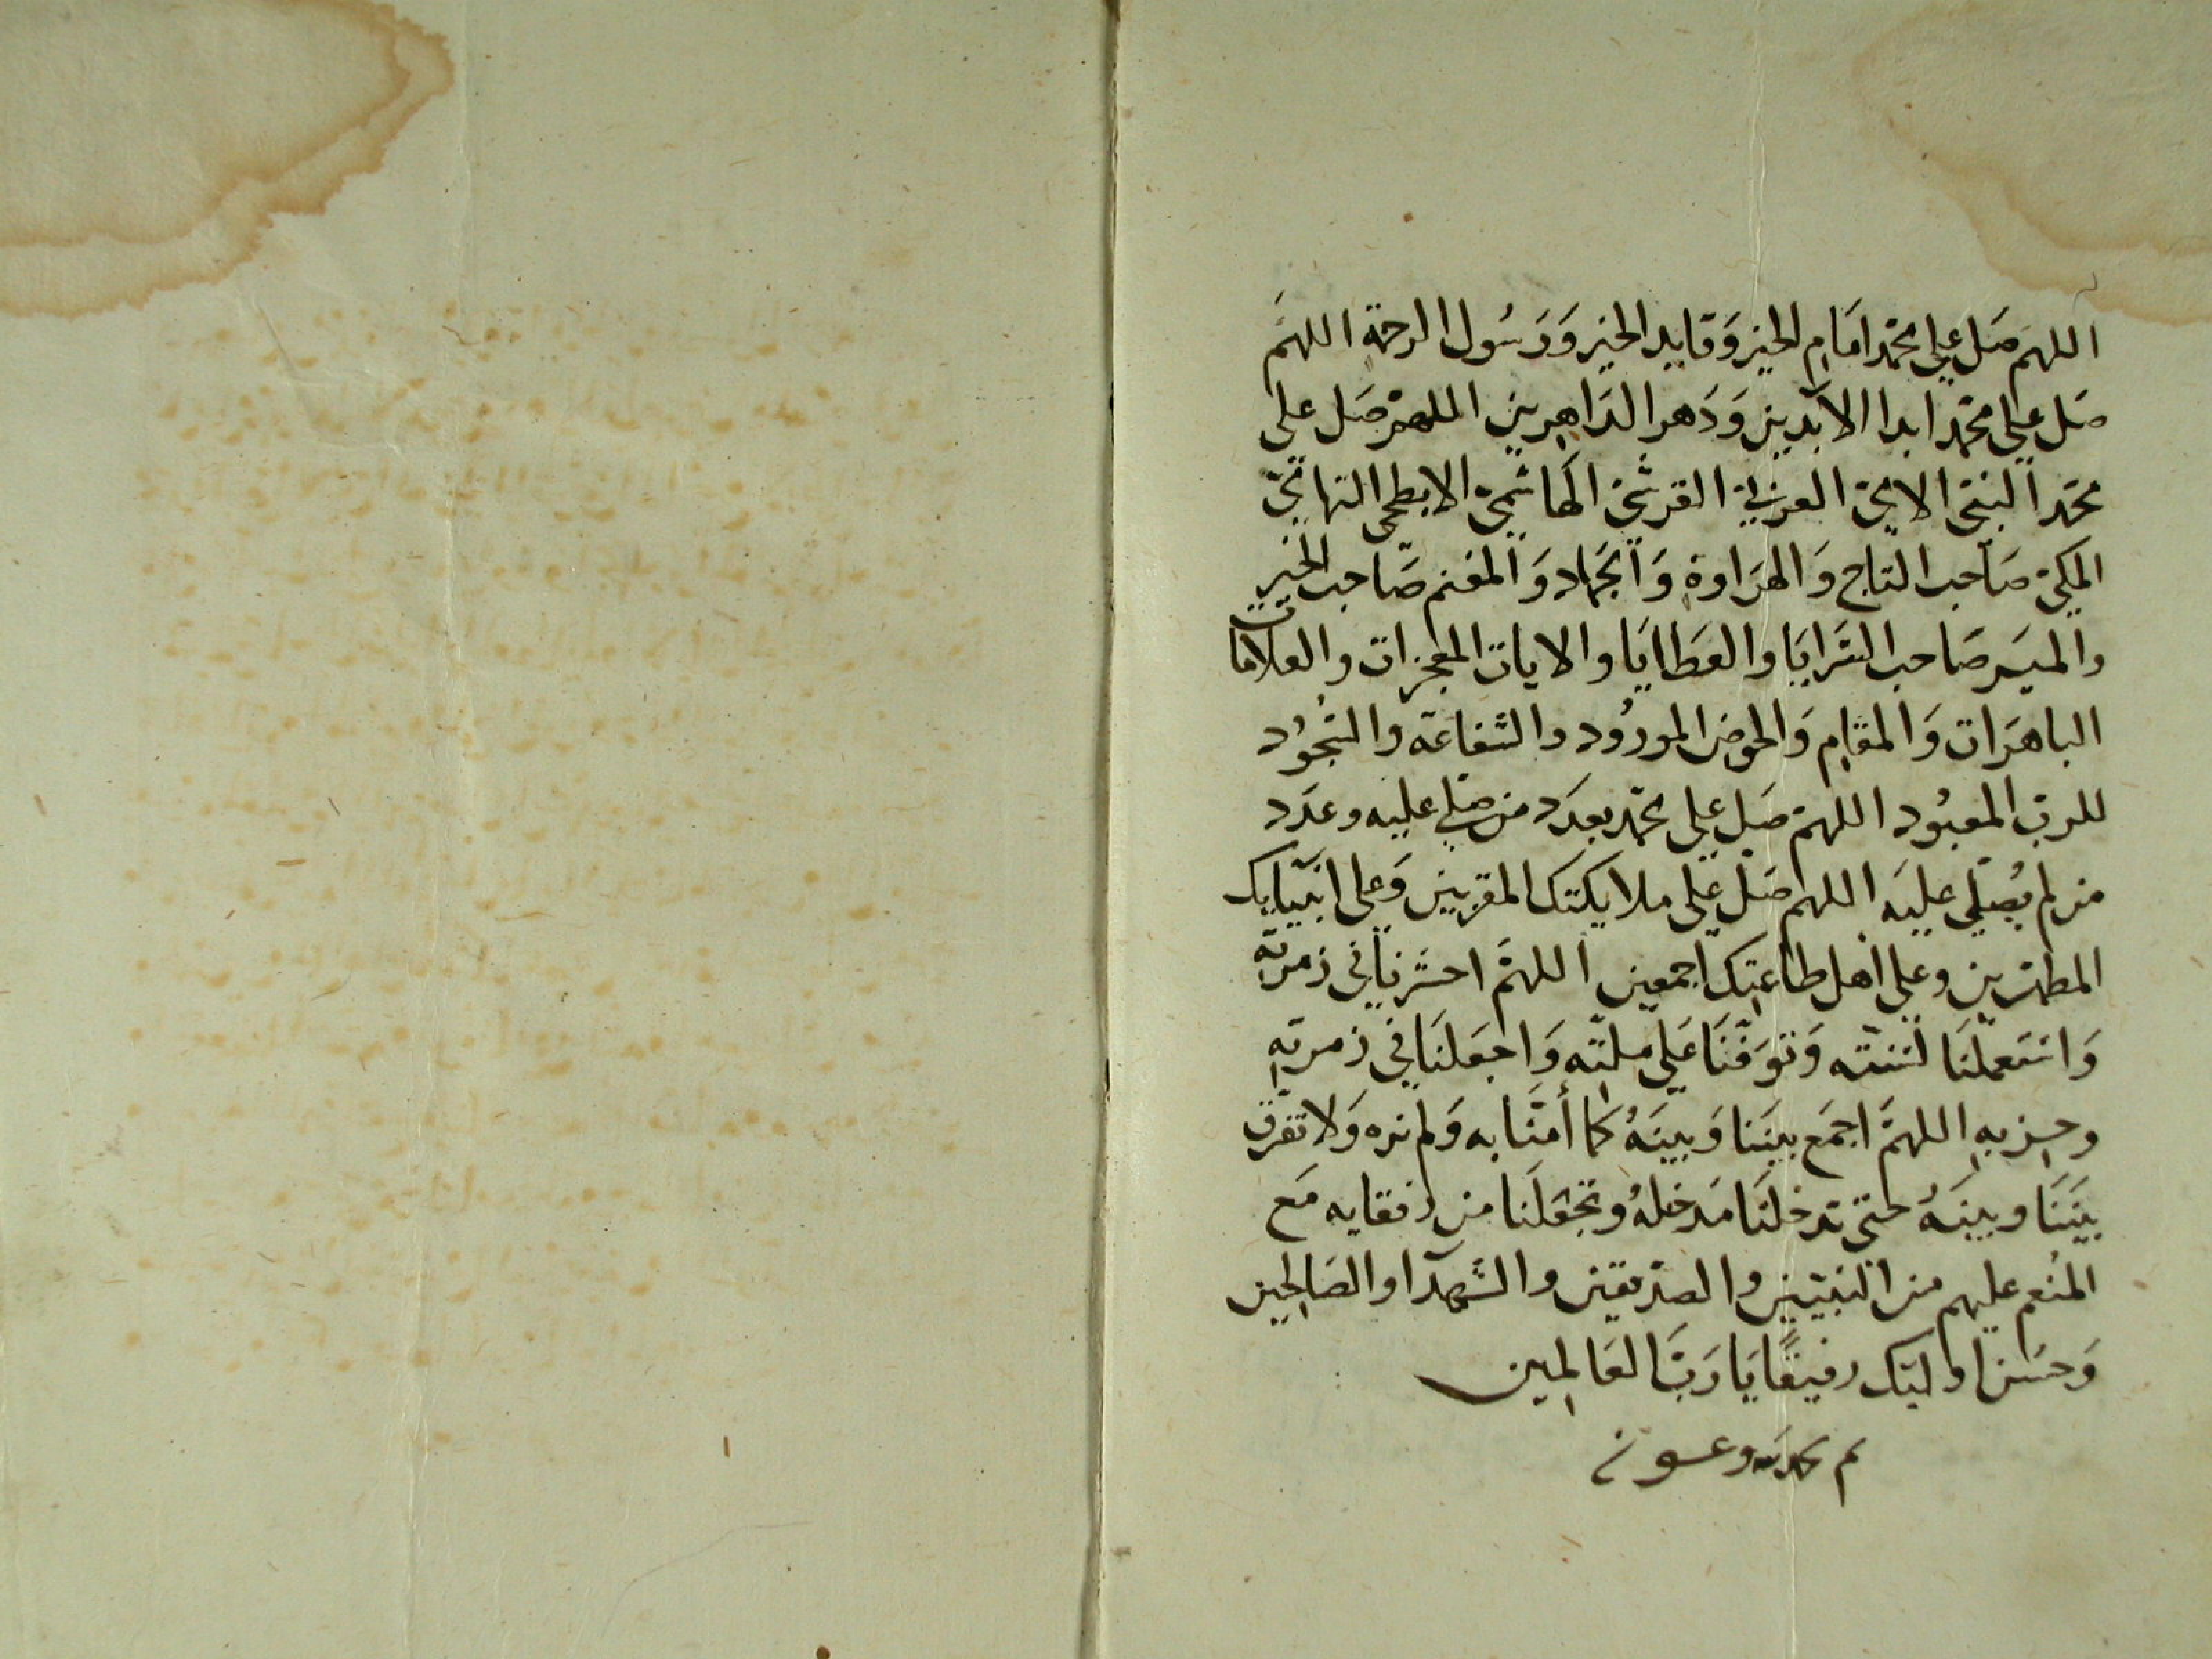 اللهم صَل علي محمد امَامِ الخير وَقايد الخير وَرَسُول الرحمة اللهمَ
صَل علي محمد ابدا الآبدين وَدَهر الدَاهِرين اللهم صَل علي
محمد النبيّ الاميّ العربيّ القرشيّ الهاشميّ الابطحي التهاميّ
المكيّ صَاحب التاج وَالهرَاوة وَالجهاد وَالمغنم صَاحب الخير
والميَر صَاحب السَرايَا والعَطايَا والايات المعجزات والعلامات
الباهرَات وَالمقامِ وَالحوض المورُود والشفاعَة والسُجُود
للرب المعبُود اللهم صَل علي محمد بعدَد من صَلي عليه وعدَد
من لم يُصَلي عليَه اللهم صَل علي ملايكتك المقربين وَعلي انبيَايك
المطهرين وعلي اهل طاعتك اجمعين اللهمَّ احشرنا في زمرته
وَاستعملنَا لسنته وَتوَفنَا عَلي ملته وَاجعَلنَا في زمرتهِ
وحِزبهِ اللهمَّ اجمَع بينَنا وَبينَهُ كما أمنَّا به وَلم نره وَلا تفرق
بينَنَا وبينَهُ حتى تدخلنَا مَدخلهُ وتجعَلنا من رفقايه مَع
المنُعم عليهم من النبيّين والصدّيقين والشهَدآ والصَالحِين
وَحسَن اوليك رفيقًا يَا رَبَّ العَالمِين
تم بحمد الله وعونه